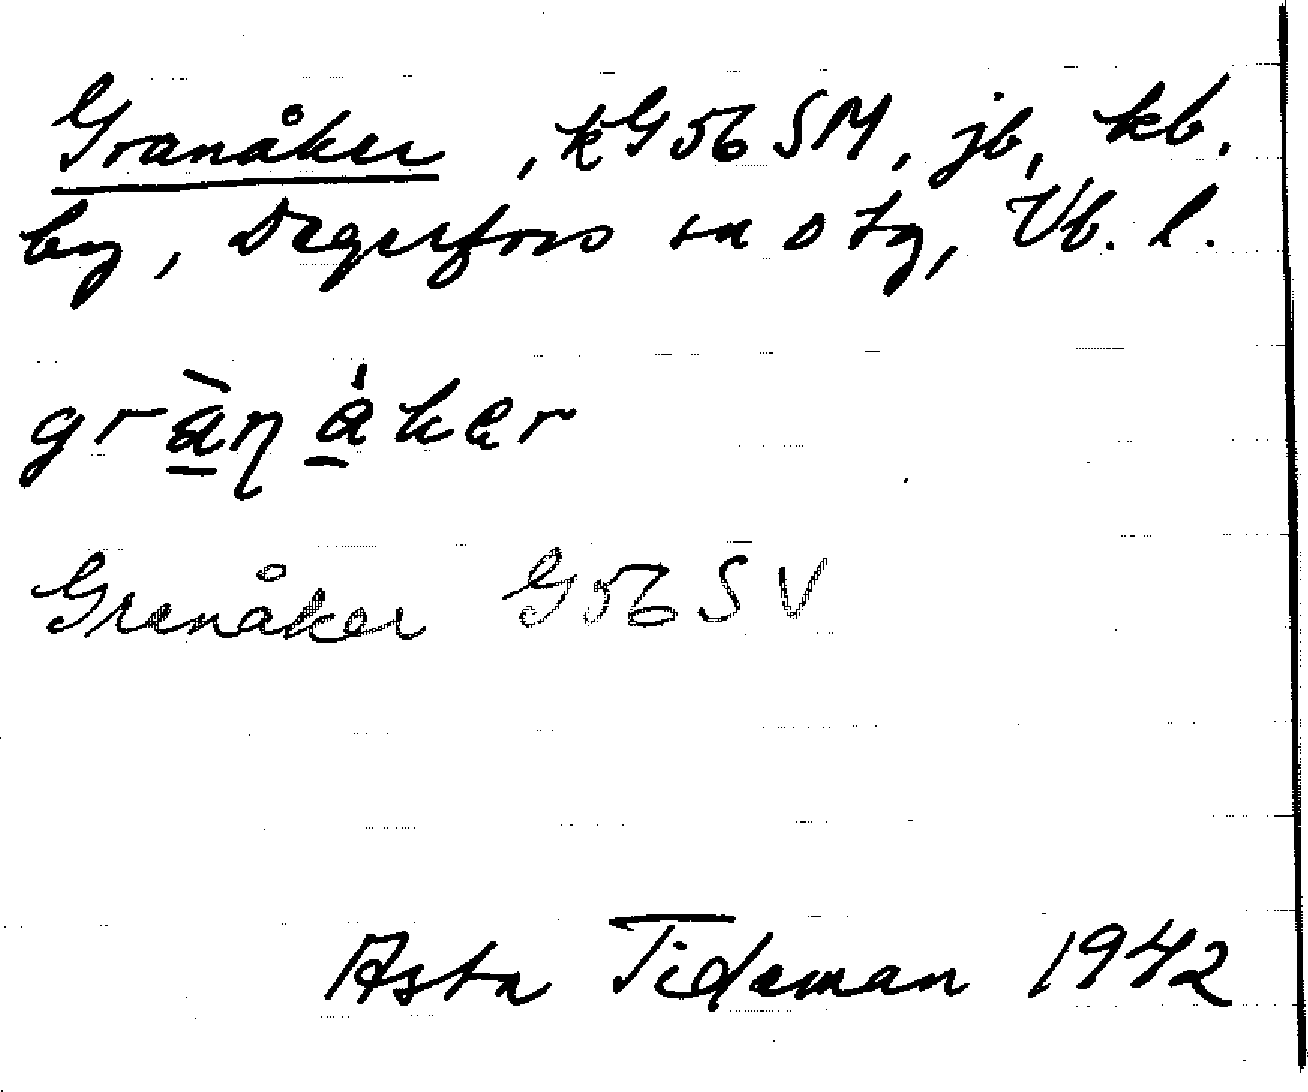 Granåker, kG56SM, jb, kb.
by, Degerfors sn o tg, Vb. l.
grànåker
Granåker G56SV
Asta Tideman 1942